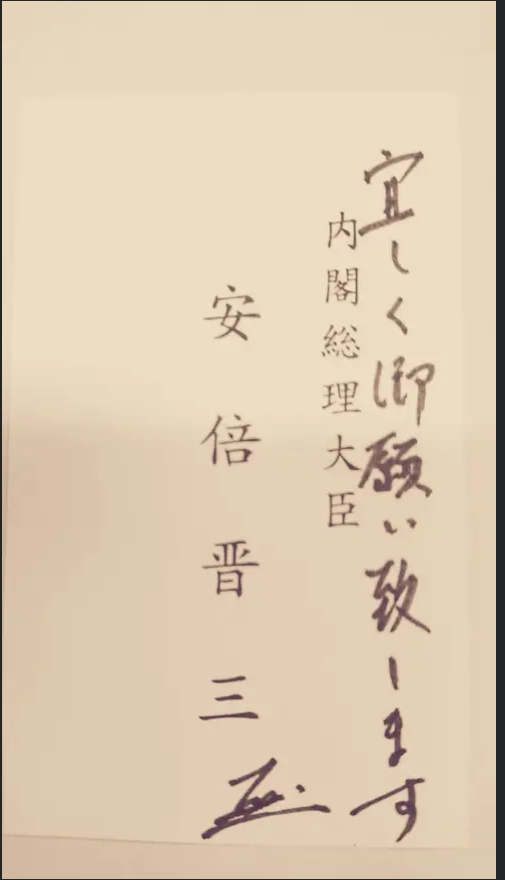 宜しく御願い致します
内閣総理大臣
安倍晋三